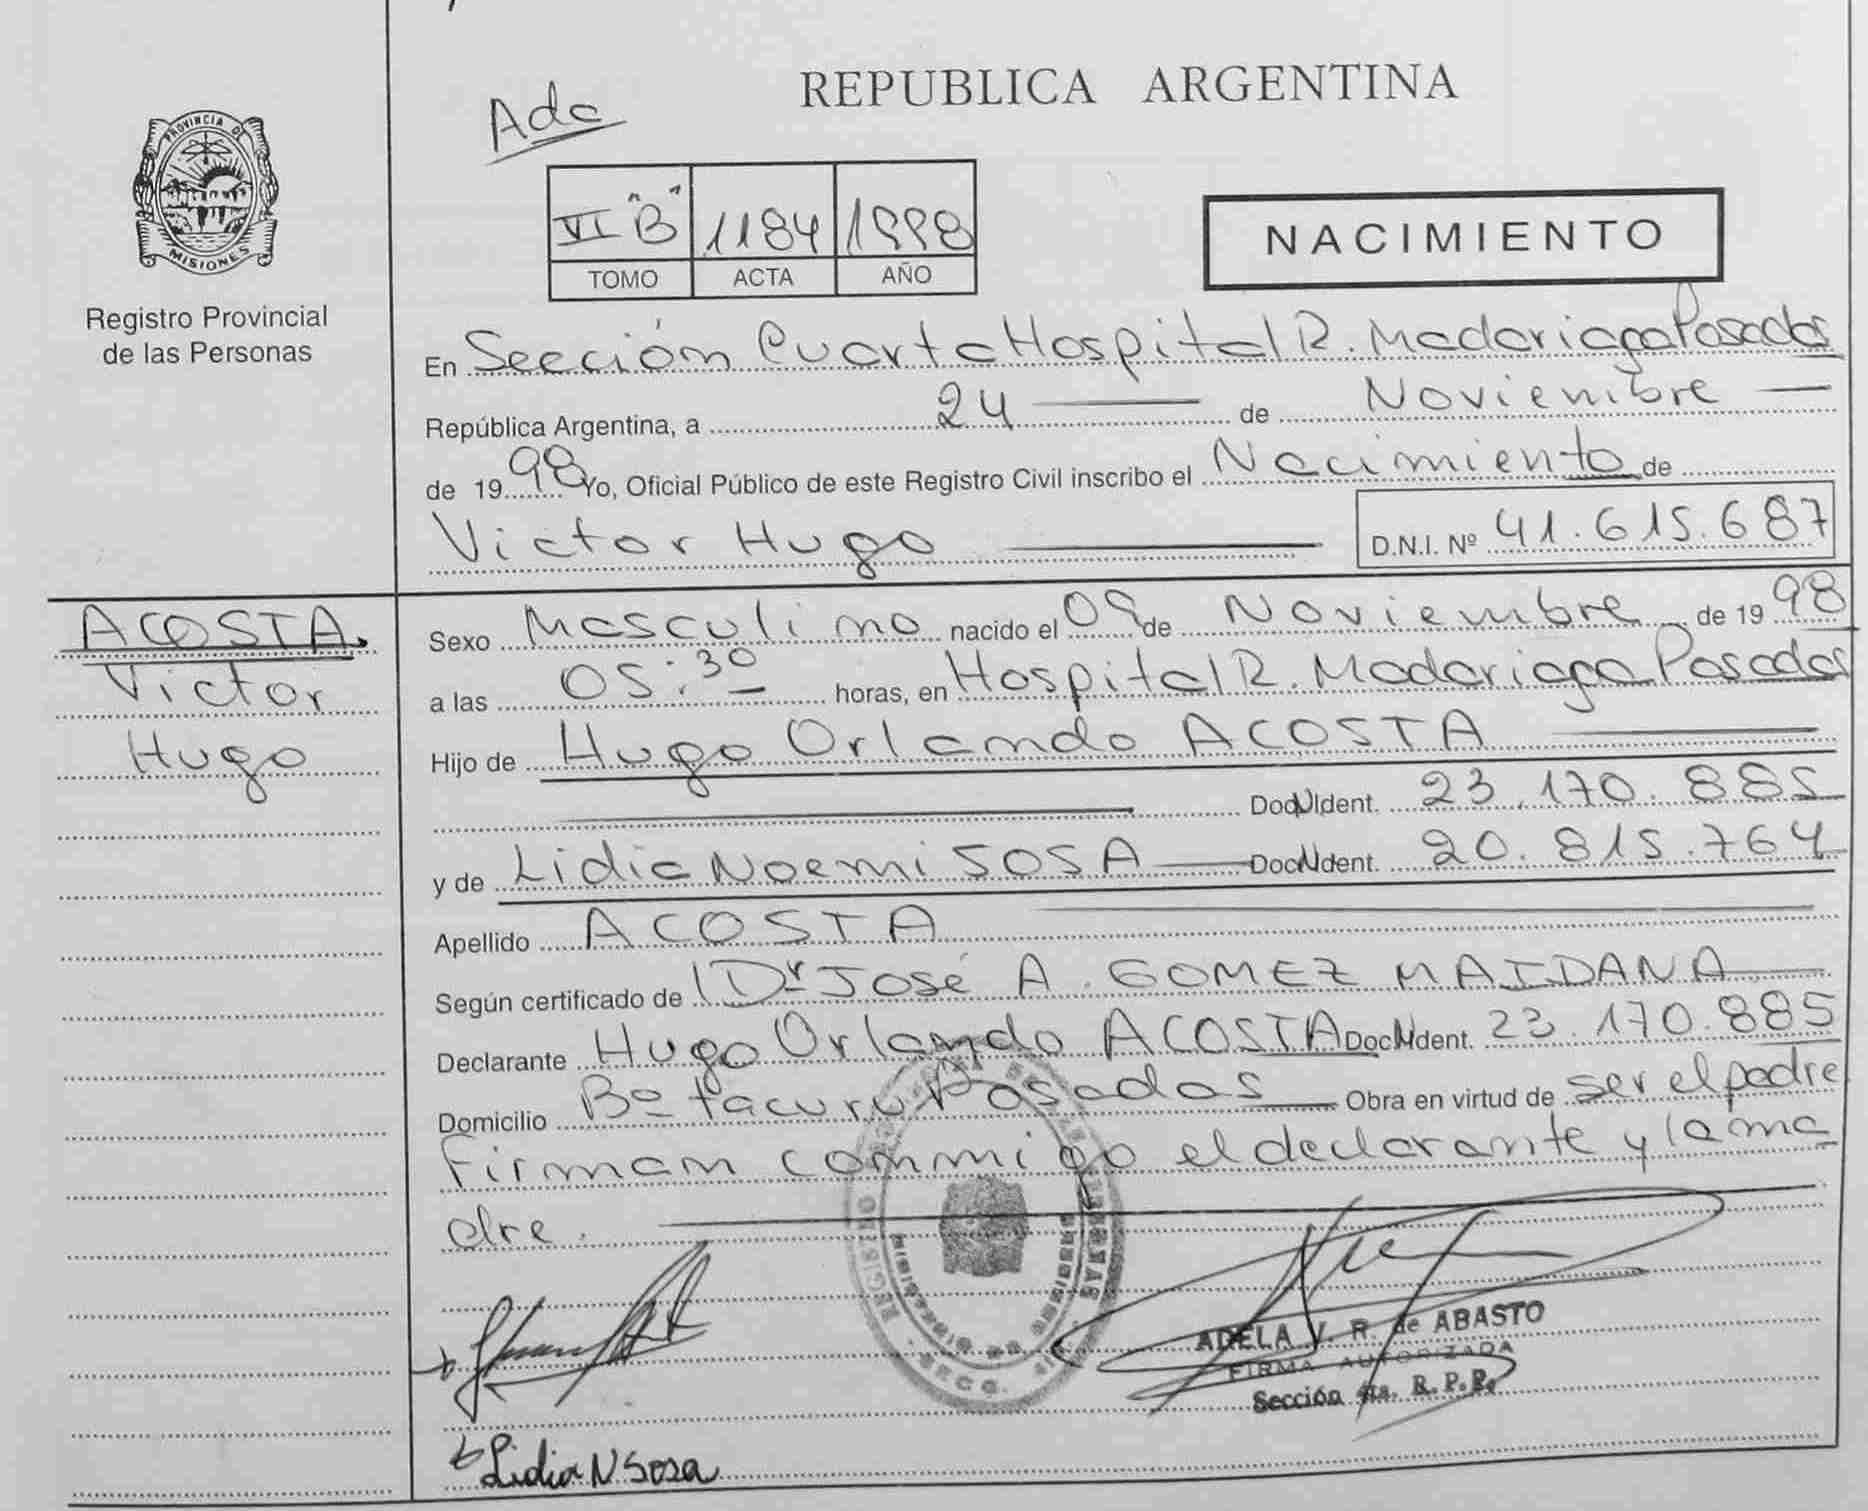 REPUBLICA ARGENTINA
Ada
PROVINCIA DE
MISIONES
Registro Provincial
de las Personas
VI "B" 1184 1998
TOMO ACTA AÑO
NACIMIENTO
En Sección Cuarta Hospital R. Madariaga Posadas
República Argentina, a 24 de Noviembre
de 1998 Yo, Oficial Público de este Registro Civil inscribo el Nacimiento de
Victor Hugo D.N.I. Nº 41.615.687
ACOSTA
Victor
Hugo
Sexo Masculino nacido el 09 de Noviembre de 1998
a las 05:30 horas, en Hospital R. Madariaga Posadas
Hijo de Hugo Orlando ACOSTA
Doc. Ident. 23.170.885
y de Lidia Noemi SOSA Doc. Ident. 20.815.764
Apellido ACOSTA
Según certificado de Dr José A. GOMEZ MAIDANA
Declarante Hugo Orlando ACOSTA Doc. Ident. 23.170.885
Domicilio Bº tacuru Posadas Obra en virtud de ser el padre
Firman conmigo el declarante y la ma
dre.
ADELA V. R. de ABASTO
FIRMA AUTORIZADA
Sección 4ta. R.P.P.
Lidia N Sosa